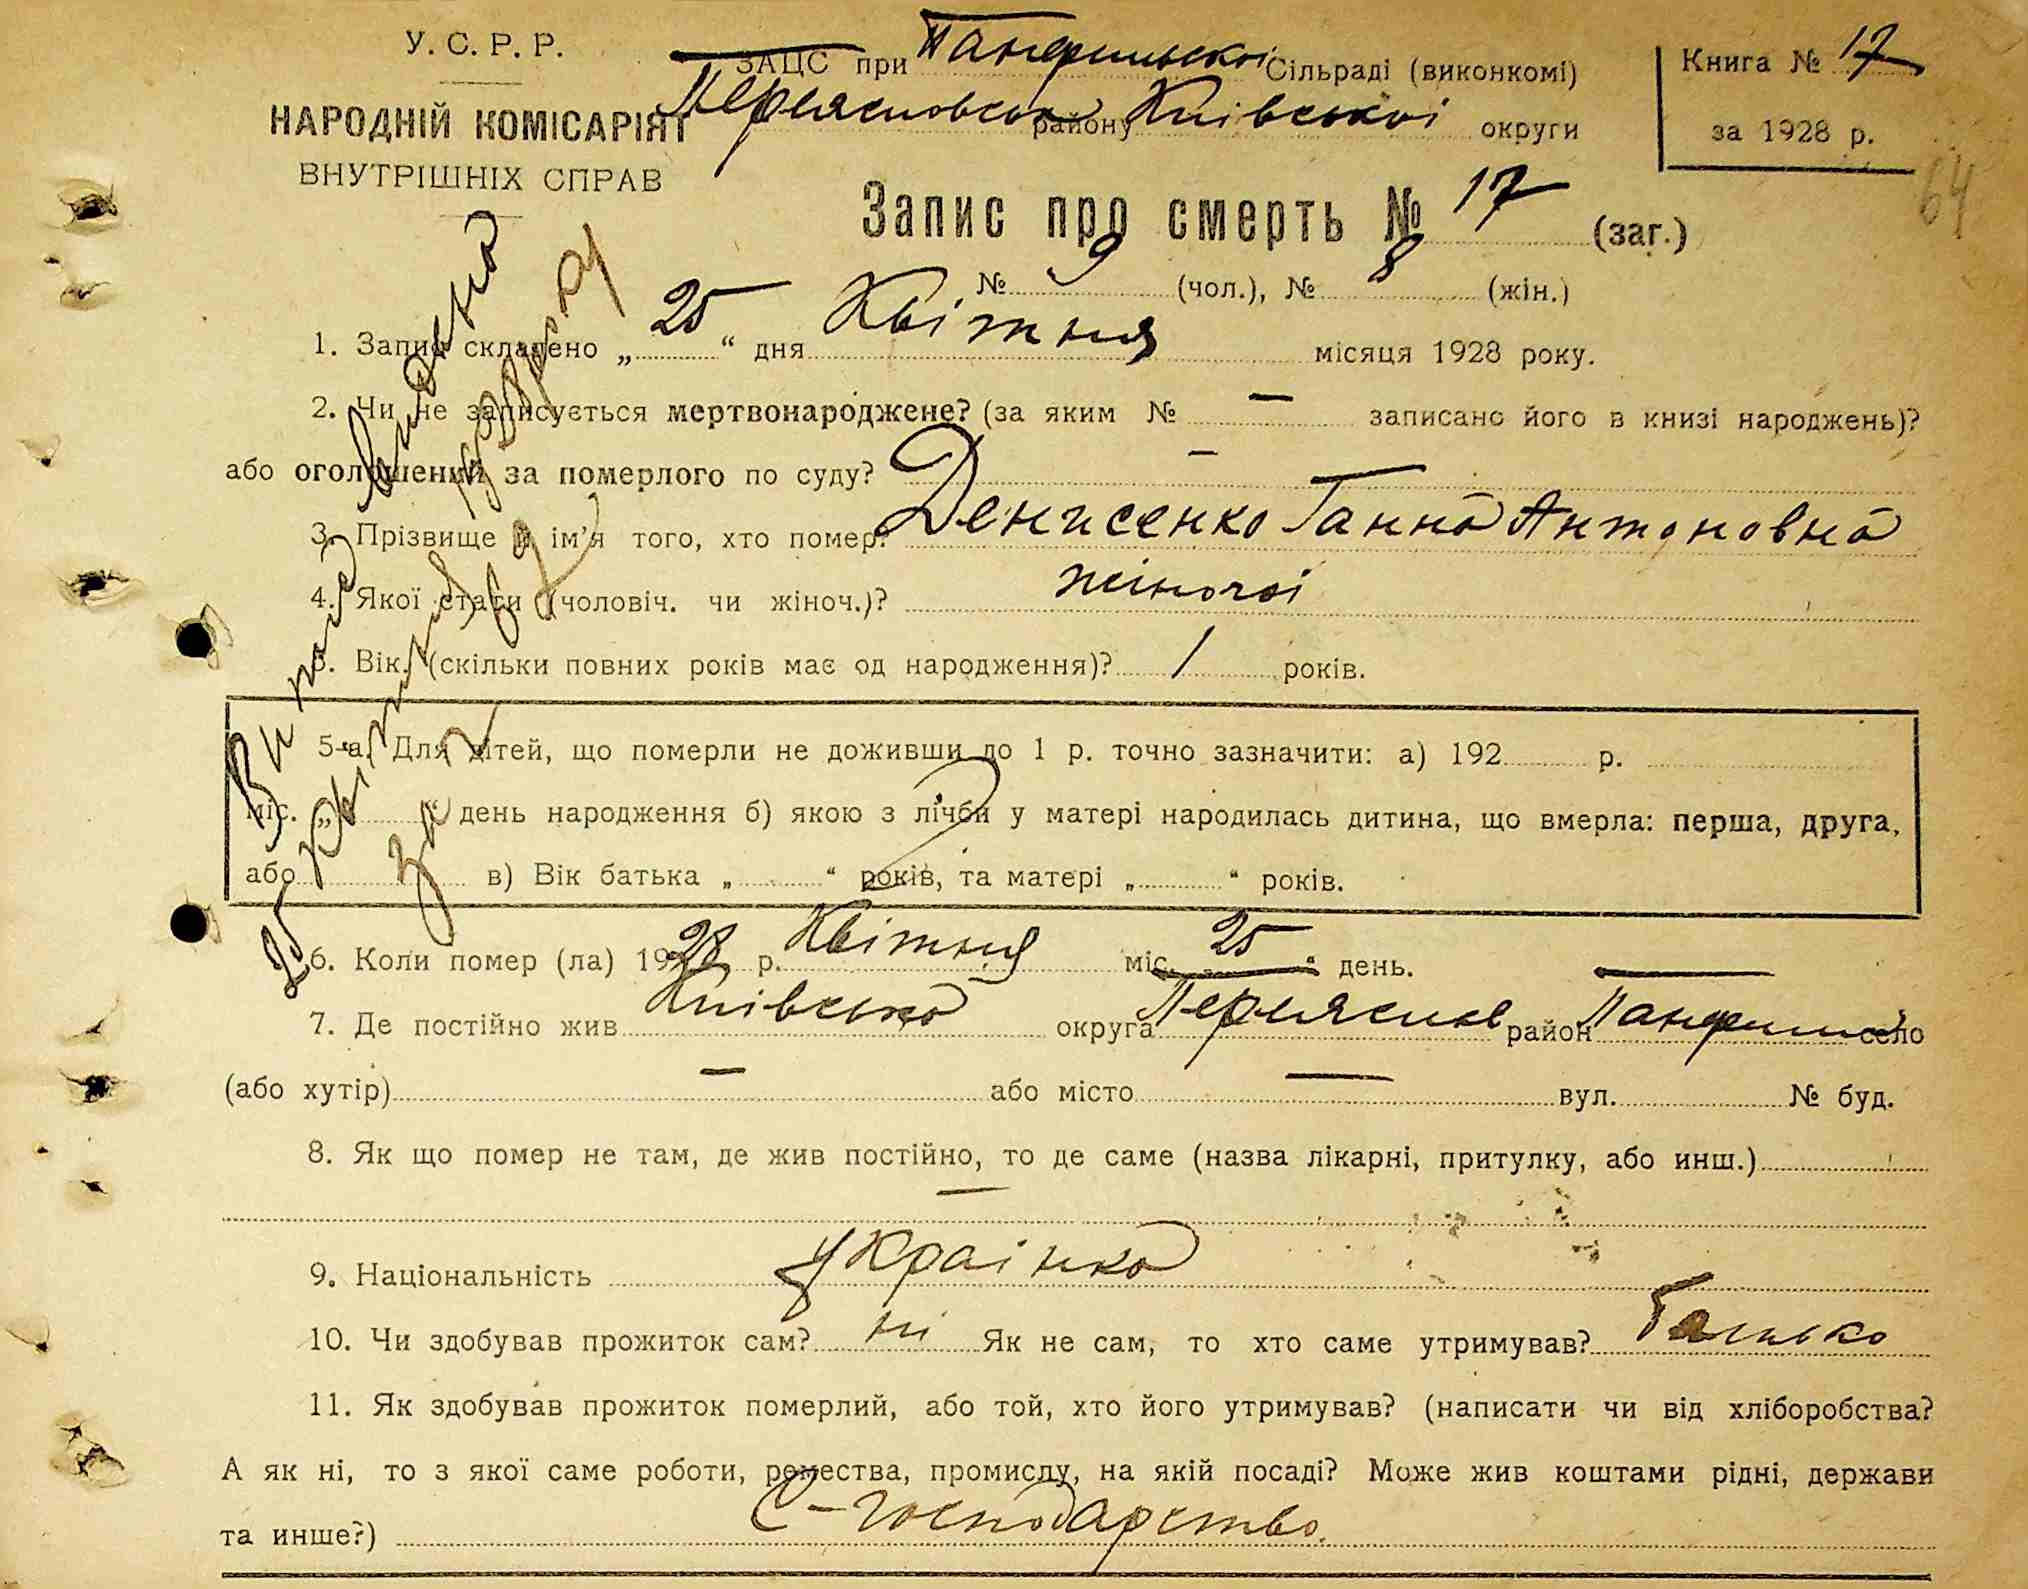 У. С. Р. Р.
НАРОДНІЙ КОМІСАРІЯТ
ВНУТРІШНІХ СПРАВ
ЗАЦС при Панфильскої Сільраді (виконкомі)
Переясловськ району Київської округи
Книга № 17
за 1928 р.
64
Запис про смерть № 17 (заг.)
№ 9 (чол.), № 8 (жін.)
1. Запис складено „ 25 “ дня Квітня місяця 1928 року.
2. Чи не записується мертвонароджене? (за яким № — записано його в книзі народжень)?
або оголошений за померлого по суду? —
3. Прізвище й ім'я того, хто помер? Денисенко Ганна Антоновна
4. Якої стати (чоловіч. чи жіноч.)? жіночої
5. Вік. (скільки повних років має од народження)? 1 років.
5-а. Для дітей, що померли не доживши до 1 р. точно зазначити: а) 192 р.
міс. „ “ день народження б) якою з лічби у матері народилась дитина, що вмерла: перша, друга,
або в) Вік батька „ “ років, та матері „ “ років.
6. Коли помер (ла) 1928 р. Квітня міс. 25 “ день.
7. Де постійно жив Київська округа Переяслов район Панфили село
(або хутір) — або місто — вул. № буд.
8. Як що помер не там, де жив постійно, то де саме (назва лікарні, притулку, або инш.)
—
9. Національність українка
10. Чи здобував прожиток сам? ні Як не сам, то хто саме утримував? Батько
11. Як здобував прожиток померлий, або той, хто його утримував? (написати чи від хліборобства?
А як ні, то з якої саме роботи, ремества, промислу, на якій посаді? Може жив коштами рідні, держави
та инше?) С-господарство.
Випись видана
25 квітня
за №